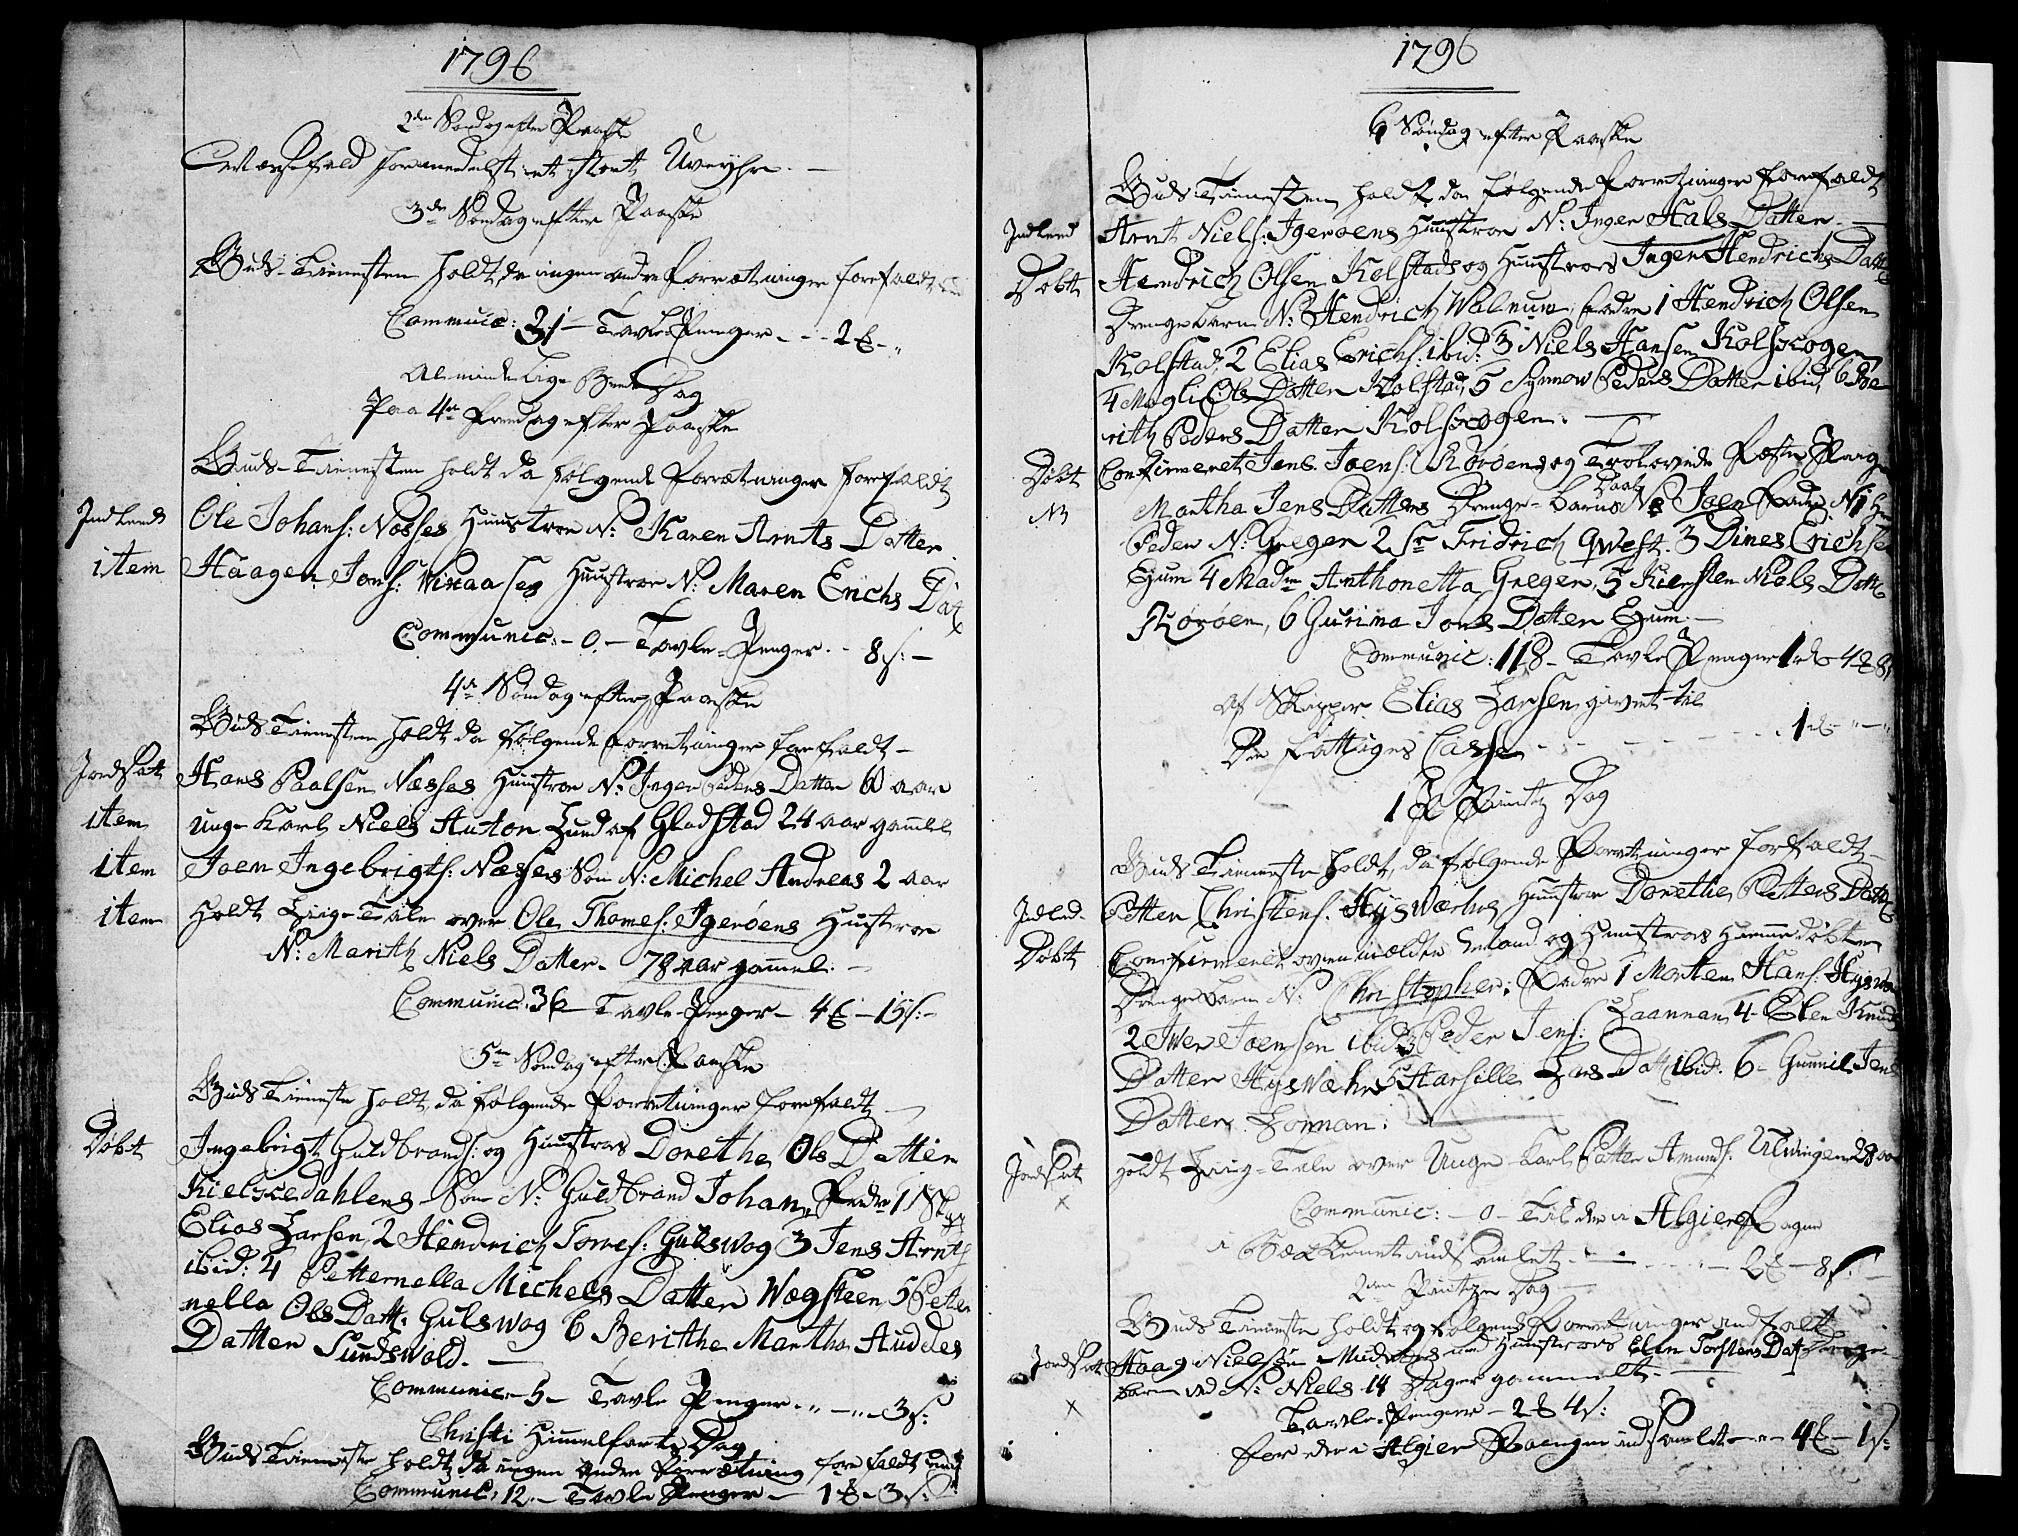 1796
2den Søndag efter Paaske
Messefald formedelst et stort Uveyhr. —
3de Søndag efter Paaske
Guds-Tienesten holdt, da ingen andre Forretninger forefaldt
Communic: 31 — Tavle-Penger - - - 2 ℔ - "
Almindelige Bede Dag
Paa 4de Fredag efter Paaske
Guds-Tienesten holdt da følgende Forretninger forefaldt
Indleedt Ole Johans: Næsses Huustroe N: Karen Arnts Datter
item Haagen Jons: Huustroe N: Maren Erichs Dat
Communic: - 0. - Tavle-Penger - - 8 s: —
4de Søndag efter Paaske
Guds Tienesten holdt da følgende Forretninger forefaldt —
Jordsat Hans Paalsen Næsses Huustroe N: Inger Peders Datter 60 aar
item unge Karl Niels Anton Lund af Gladstad 24 aar gammel
item Joen Ingebrigts: Næsses Søn N: Michel Andreas 2 aar
item Holdt Liig-Tale over Ole Thomes: Igerøens Huustroe
N: Marith Niels Datter - 78 aar gammel: —
Communic: 36 — Tavle-Penger — 4 ℔ — 15 s: —
5te Søndag efter Paaske
Guds Tieneste holdt, da følgende Forretninger forefaldt —
Døbt Ingebrigt Guldbrands: og Huustroes Dorethe Ols Datter
Kielsædahlens Søn N: Guldbrand Johan, Fadre 1
Elias Larsen 2 Hendrich Torres: Gulswog 3 Jens Arnts
ibid: 4 Petternella Michels Datter Wegsteen 5 Peter
nella Ols Datt: Gulswog 6 Berithe Martha Auddes
Datter Sundswold. —
Communic: 5 — Tavle Penger - " — " - 3 s:
Christi Himmelfarts Dag
Guds Tieneste holdt, da ingen andre Forretning forefaldt end
Communic: 12. — Tavle Penger — 1 ℔ - 3 s:
1796
6 Søndag efter Paaske
Guds Tienesten holdt da følgende Forretninger forefaldt
Indleed Arnt Niels: Igerøens Huustroe N: Inger Hals Datter —
Døbt Hendrich Olsen Kolstads og Huustroes Inger Hendrichs Datt
Drengebarn N: Hendrich Walnum, fadre 1 Hendrich Olsen
Kolstad, 2 Elias Erichs: ibid: 3 Niels Hansen Kolscogen
4 Magli Ols Datter Kolstad, 5 Synnow Peders Datter ibid, 6 Be
rith Peders Datter Kolscogen. —
Døbt Confirmeret Jens Joens: Rørøens og Trolovede Fæste Pige
NB Martha Jens Datters Drenge-Barns Daab N: Joen Fadre N 1
Peder N: Greger 2 Sr Fridrich Qvest. 3 Dines Erichse
Egum 4 Madm Anthonetta Greger, 5 Kiersten Niels Datte
Rørøen, 6 Gurina Jons Datter Egum. —
Communic: 118 — Tavle Penger 1 rd 4 ℔ 8
Af Skipper Elias Larsen givet til
De fattiges Casse - - - - - 1 rd - " - "
1 P Pintz Dag
Guds Tieneste holdt, da følgende Forretninger forefaldt —
Indled Petter Christens: Hyswærhes Huustroe Dorethe Petters Datt
Døbt Confirmeret ovenmældte Mand og Huustroes Hiemmedøbte
Drengebarn N: Christopher; Fadre 1 Morten Hans: Hyswæ
2 Iwer Joensen ibid 3 Peder Jens: Laannan, 4 - Elen Knuds
Datter Hyswæhr 5 Harsille Lars Datt ibid: 6 - Gunnil Jens
Datter Lonnan: —
Jordsat holdt Liig-Tale over Unge-Karl Petter Amunds: Ulvingen 28 aa
× Communic: - 0 - Til de i Algier Fagne
i Bækkenet indsamlet - - - - - 2 ℔ — 8 s: —
2den Pintze Dag —
Guds Tieneste holdt, og følgende Forretninger indfaldt
Jordsat Haag Nielsen Mudvogs med Huustroes Elen Torstens Dat Drenge
× barn ved N: Niels 14 Dager gammelt. —
Tavle-Penger — 2 ℔ 4 s:
For de i Algier Faangne indsamlet — — 4 ℔ — 1 s: